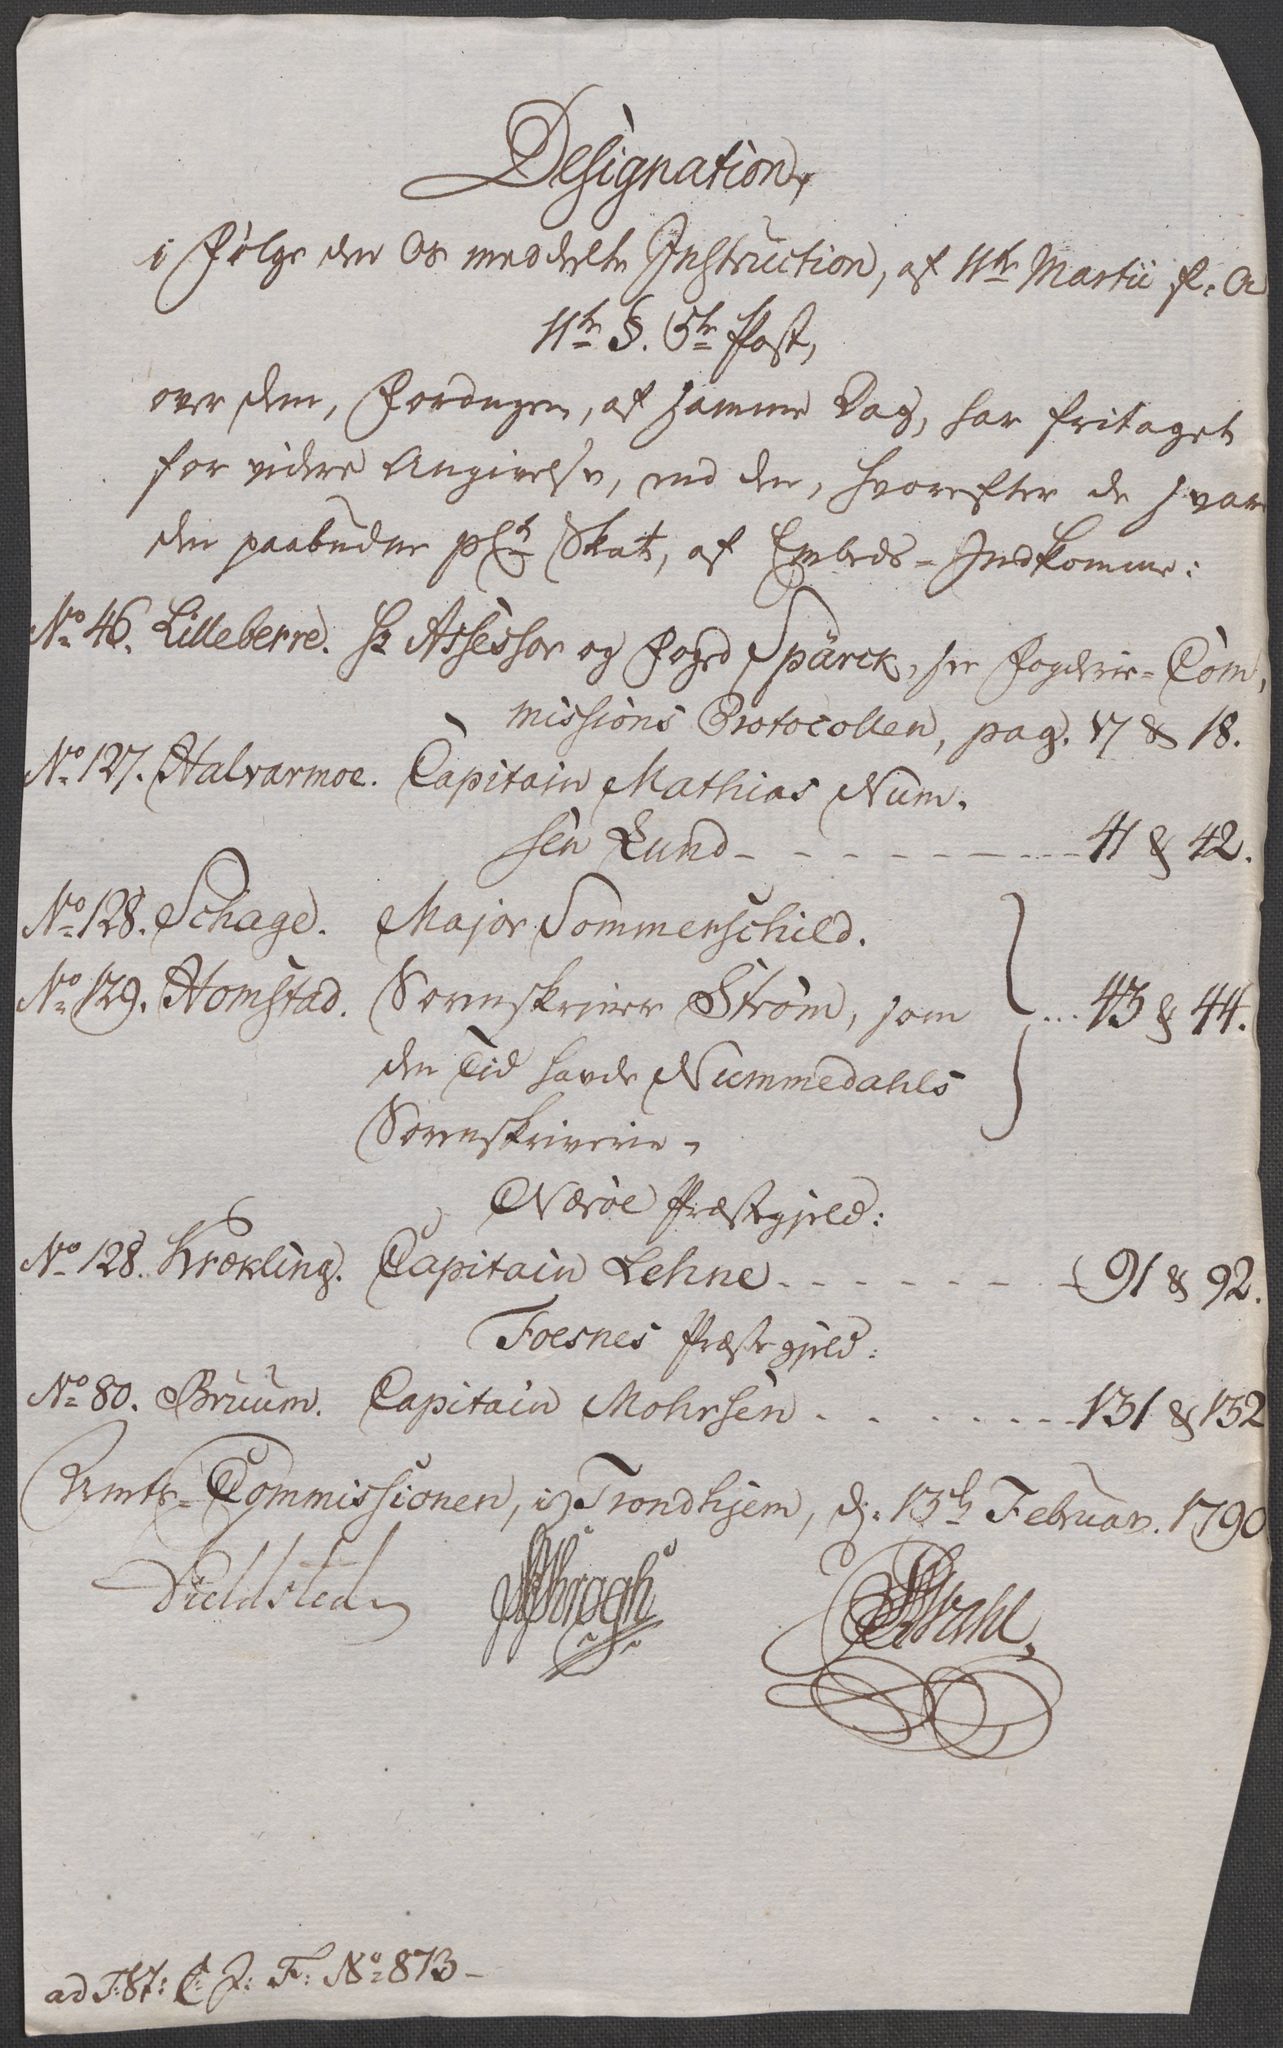 Designation,
i Følge den Os meddelte Instruction, af 11te Martii f: A
11te §. 5te Post,
over dem, Forordngen, af samme Dag, har fritaget
for videre Angivelse, end den, hvorefter de svare
den paabudne pCt Skat, af Embeds-Indkomme:
No 46. Lilleberre. Hr Assessor og Foged Spärck, see Fogderie-Com,
missions Protocollen, pag. 17 & 18.
No 127. Halvarmoe. Capitain Mathias Num,
sen Lund - - - - - - - - 41 & 42.
No 128. Schage. Major Sommerschild.
No 129. Homstad. Sorenskriver Strøm, som } ... 43 & 44.
den Tid havde Nummedahls
Sorenskriverie,
Nærøe Præstegjeld:
No 128. Krækling. Capitain Lehne - - - - - - - 91 & 92.
Foesnes Præstegjeld:
No 80. Bruum. Capitain Mohrsen . . . . . - - - 131 & 132
Amts-Commissionen, i Trondhjem, d: 13th Februar. 1790
Dieldsted
ad T: 87: C. J: F: No 873-